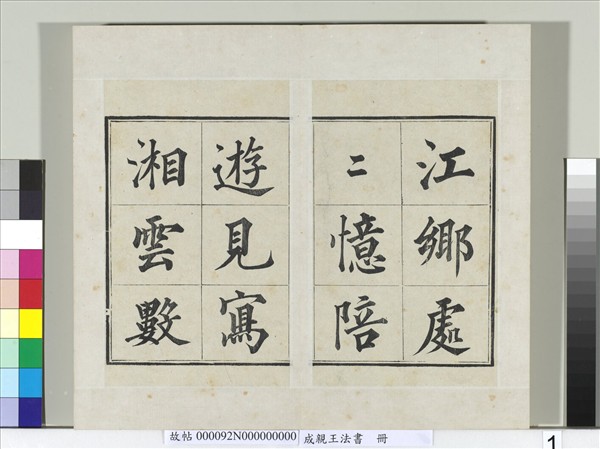 江鄉處
〻憶陪
遊見寫
湘雲數
故帖 000092N000000000 成親王法書 冊
1